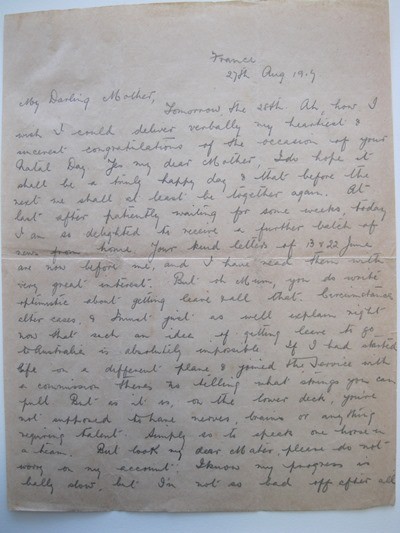 France
27th Aug 19.7
My Darling Mother,
Tomorrow the 28th Ah, how I
wish I could deliver verbally my heartiest &
sincerest congratulations of the occasion of your
Natal Day. Yes my dear Mother, I do hope it
shall be a truly happy day & that before the
next we shall at least be together again. At
last after patiently waiting for some weeks, today
I am so delighted to receive a further batch of
news from home. Your kind letters of 13 & 22 June
are now before me, and I have read them with
very great interest. But oh Mum, you do write
optimistic about getting leave & all that. Circumstances
alter cases, & I must just as well explain right
now that such an idea of getting leave to go
to Australia is absolutely impossible. If I had started
life on a different plane & joined the Service with
a commission theres no telling what strings you can
pull But as it is, on the lower deck, you're
not supposed to have nerves, brains or anything
requiring talent Simply so to speak one horse in
a team. But look my dear Mater, please do not
worry on my account. I know my progress is
bally slow, but I'm not so bad off after all